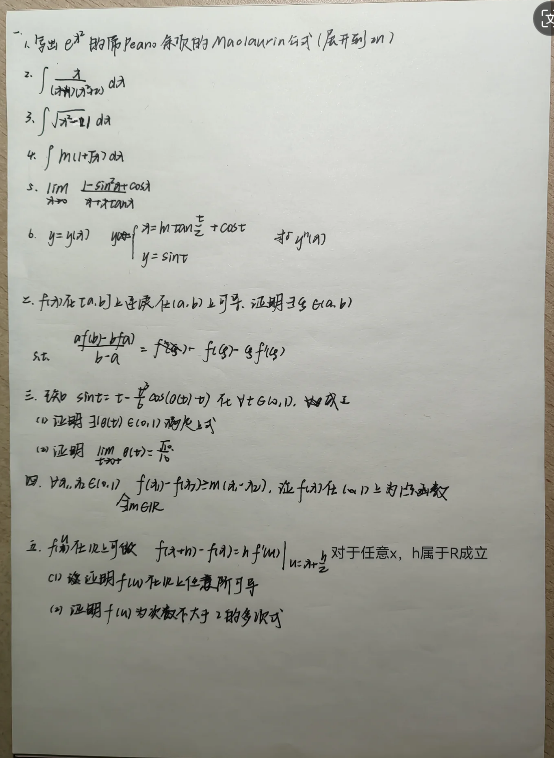 一. 1. 写出 e^{x^2} 的带 Peano 余项的 Maclaurin 公式 (展开到 2n)
2. ∫ x/((x+1)(x²+2)) dx
3. ∫ √(x²-1) dx
4. ∫ ln(1+√x) dx
5. lim_{x→0} (1-sin²x+cosx)/(x+xtanx)
6. y=y(x) { x=ln tan t/2 + cost
y=sint 求 y''(x)
二. f(x)在[a,b]上连续 在(a,b)上可导. 证明∃ξ∈(a,b)
s.t. (af(b)-bf(a))/(b-a) = f(ξ)-ξf'(ξ)
三. sint = t - t³/6 cos(θ(t)·t) 在 ∀t∈(0,1). 成立
(1) 证明 ∃!θ(t)∈(0,1) 满足上式
(2) 证明 lim_{t→0+} θ(t)=√10/10
四. ∀x₁,x₂∈(0,1) f(x₁)-f(x₂)≥m(x₁-x₂), 证 f(x)在(0,1)上为凸函数
令m∈R
五. f(u)在R上可微 f(x+h)-f(x)=hf'(u)|_{u=x+h/2} 对于任意x，h属于R成立
(1) 证明 f(u)在R上任意阶可导
(2) 证明 f(u) 为次数不大于2的多项式